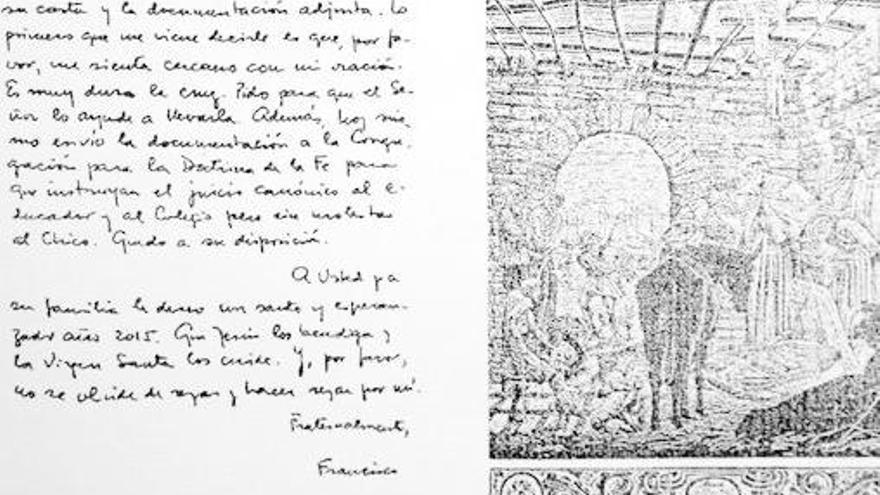 su carta y la documentación adjunta. Lo
primero que me viene decirle es que, por fa-
vor, me sienta cercano con mi oración.
Es muy dura la cruz. Pido para que el Se-
ñor lo ayude a llevarla. Además, hoy mis-
mo envío la documentación a la Congre-
gación para la Doctrina de la Fe para
que instruyan el juicio canónico al e-
ducador y al Colegio pero sin molestar
al Chico. Quedo a su disposición.
A Usted y a
su familia le deseo un santo y esperan-
zador año 2015. Que Jesús los bendiga y
la Virgen Santa los cuide. Y, por favor,
no se olvide de rezar y hacer rezar por mí.
Fraternalmente,
Francisco